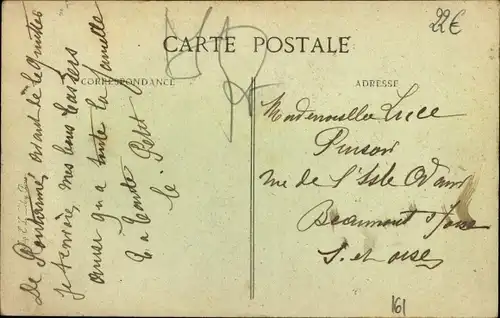 22€
CARTE POSTALE
CORRESPONDANCE
ADRESSE
De avant de le quitter
je t'envoie mes bons baisers
ainsi qu'a toute la famelle
Petit
Mademoiselle Luce
Pinson
rue de l'Isle Adam
Beaumont s/Oise
S. et oise
161